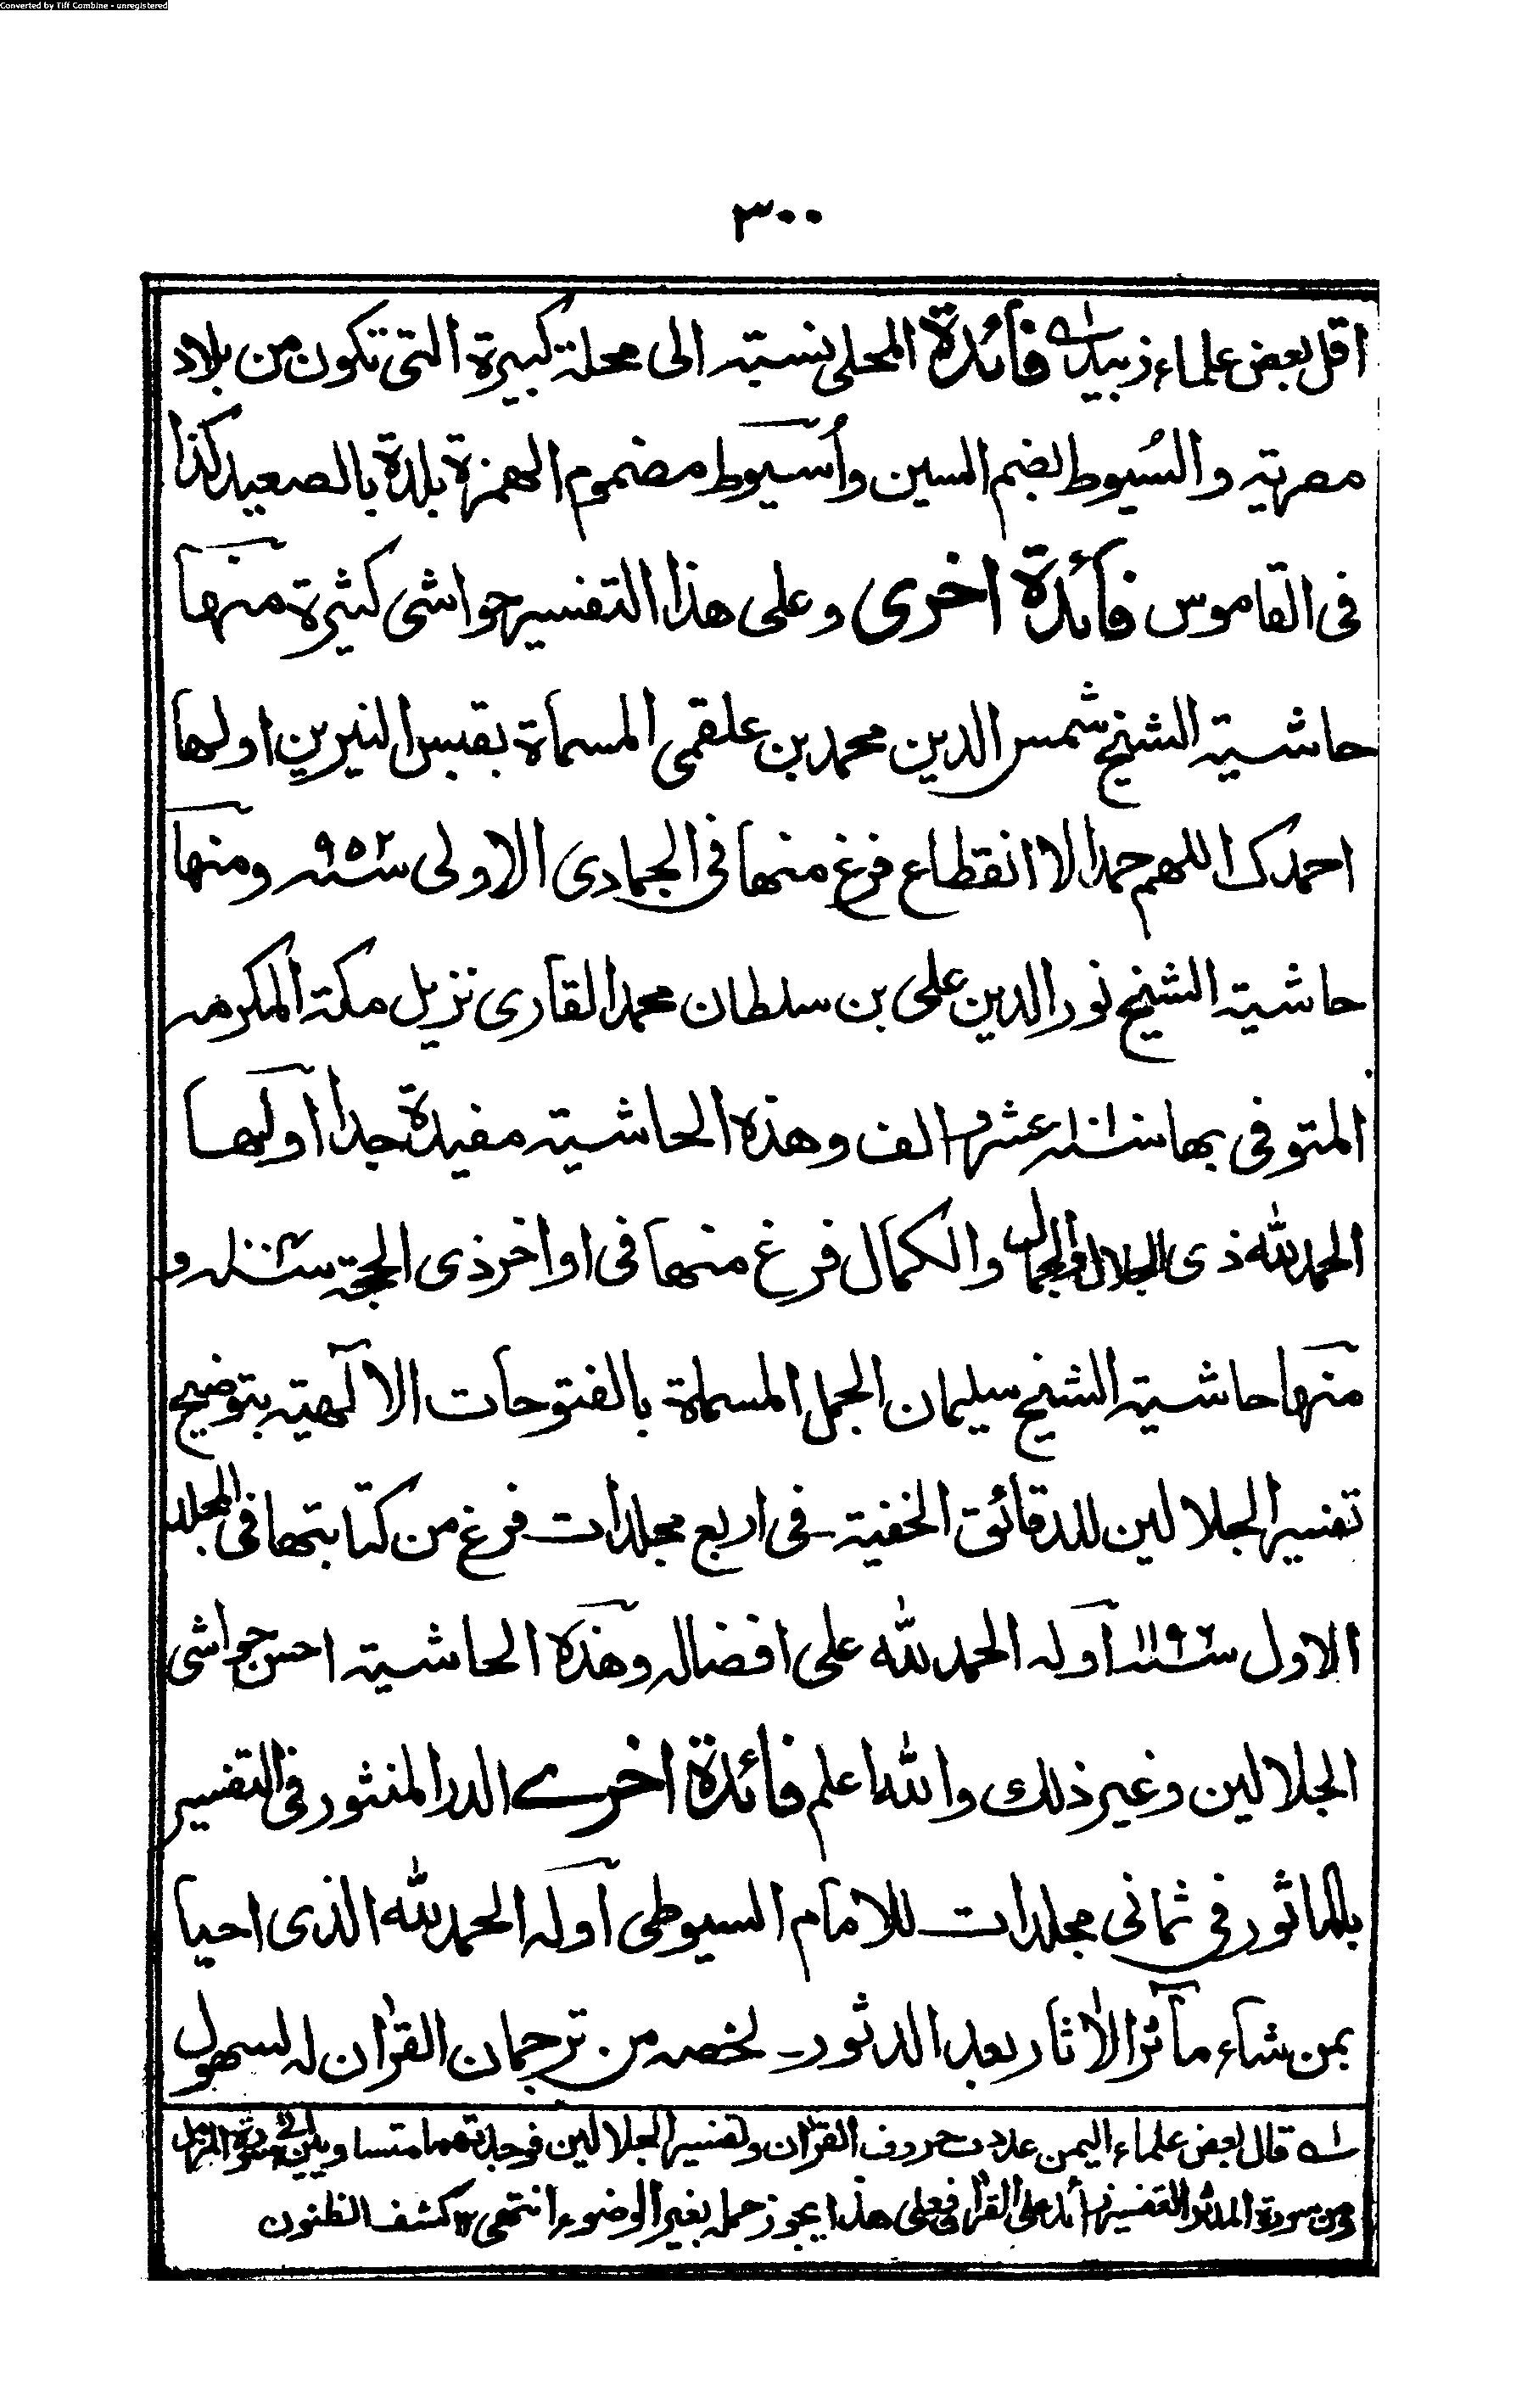 Converted by Tiff Combine - unregistered
٣٠٠
اقل بعض علماء زبيد فائدة المحلى نسبته الى محلة كبيرة التى تكون من بلاد
مصرية والسُيوط بضم السين واُسيوط مضموم الهمزة بلدة بالصعيد كذا
فى القاموس فائدة اخرى وعلى هذا التفسير حواشى كثيرة منها
حاشية الشيخ شمس الدين محمد بن علقمى المسماة بقبس النيرين اولها
احمدك اللهم حمدا لا انقطاع فرغ منها فى الجمادى الاولى سنه ٩٥٢ ومنها
حاشية الشيخ نور الدين على بن سلطان محمد القارى نزيل مكة المكرمه
المتوفى بها سنه عشر الف وهذه الحاشية مفيدة جدا اولها
الحمد لله ذى الجلال والجمال والكمال فرغ منها فى اواخر ذى الحجة سنه و
منها حاشية الشيخ سليمان الجمل المسماة بالفتوحات الالٓهية بتوضيح
تفسير الجلالين للدقائق الخفية فى اربع مجلدات فرغ من كتابتها فى المجلد
الاول سنه ١١٩٢ اوله الحمد لله على افضاله وهذه الحاشية احسن حواشى
الجلالين وغير ذلك والله اعلم فائدة اخرے الدر المنثور فى التفسير
بالماثور فى ثمانى مجلدات للامام السيوطى اوله الحمد لله الذى احيا
بمن شاء مآثر الاٰثار بعد الدثور لخصه من ترجمان القراٰن له لسهول
له قال بعض علماء اليمن عددت حروف القراٰن وتفسير الجلالين فوجدتهما متساويين الى سورة المزمل
ومن سورة المدثر التفسير زائد على القراٰن فعلى هذا يجوز حمله بغير الوضوء انتهى ١٢ كشف الظنون